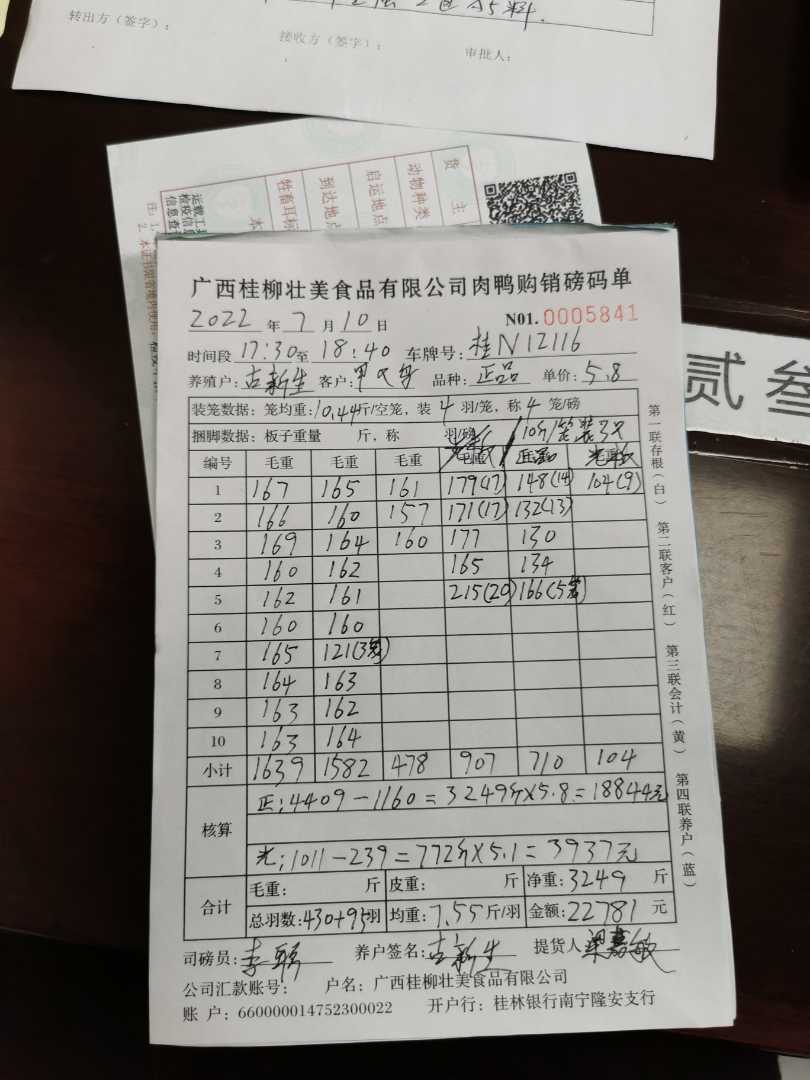 转出方（签字）：
接收方（签字）：
审批人：
货 主
动物种类
启运地点
到达地点
牲畜耳标
贰 叁
广西桂柳壮美食品有限公司肉鸭购销磅码单
2022 年 7 月 10 日 N01. 0005841
时间段 17:30 至 18:40 车牌号：桂N12116
养殖户：古新生 客户： 品种：正品 单价：5.8
装笼数据：笼均重：10.44斤/空笼，装 4 羽/笼，称 4 笼/磅
捆脚数据：板子重量 斤，称 羽/磅
编号 毛重 毛重 毛重 毛重
1 167 165 161 179(17) 148(14) 104(9)
2 166 160 157 171(17) 132(13)
3 169 164 160 177 130
4 160 162 165 134
5 162 161 215(20) 166(5笼)
6 160 160
7 165 121(3笼)
8 164 163
9 163 162
10 163 164
小计 1639 1582 478 907 710 104
核算 正：4409-1160=3249斤×5.8=18844元
光：1011-239=772斤×5.1=3937元
合计 毛重： 斤 皮重： 斤 净重：3249 斤
总羽数：430+95羽 均重：7.55斤/羽 金额：22781 元
司磅员： 养户签名：古新生 提货人 梁嘉敏
公司汇款账号： 户名：广西桂柳壮美食品有限公司
账 户：660000014752300022 开户行：桂林银行南宁隆安支行
第一联存根（白） 第二联客户（红） 第三联会计（黄） 第四联养户（蓝）